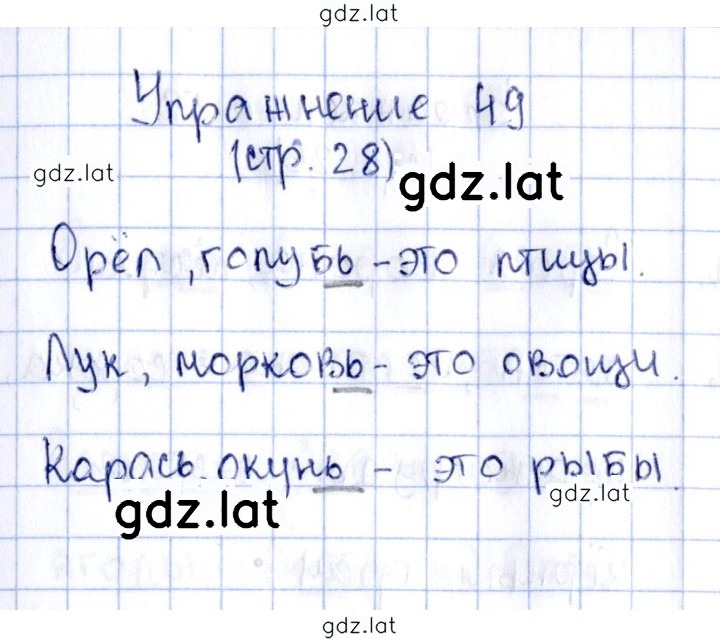 gdz.lat
Упражнение 49
(стр. 28)
gdz.lat
gdz.lat
Орёл, голубь - это птицы.
Лук, морковь - это овощи.
Карась. окунь - это рыбы.
gdz.lat
gdz.lat
gdz.lat